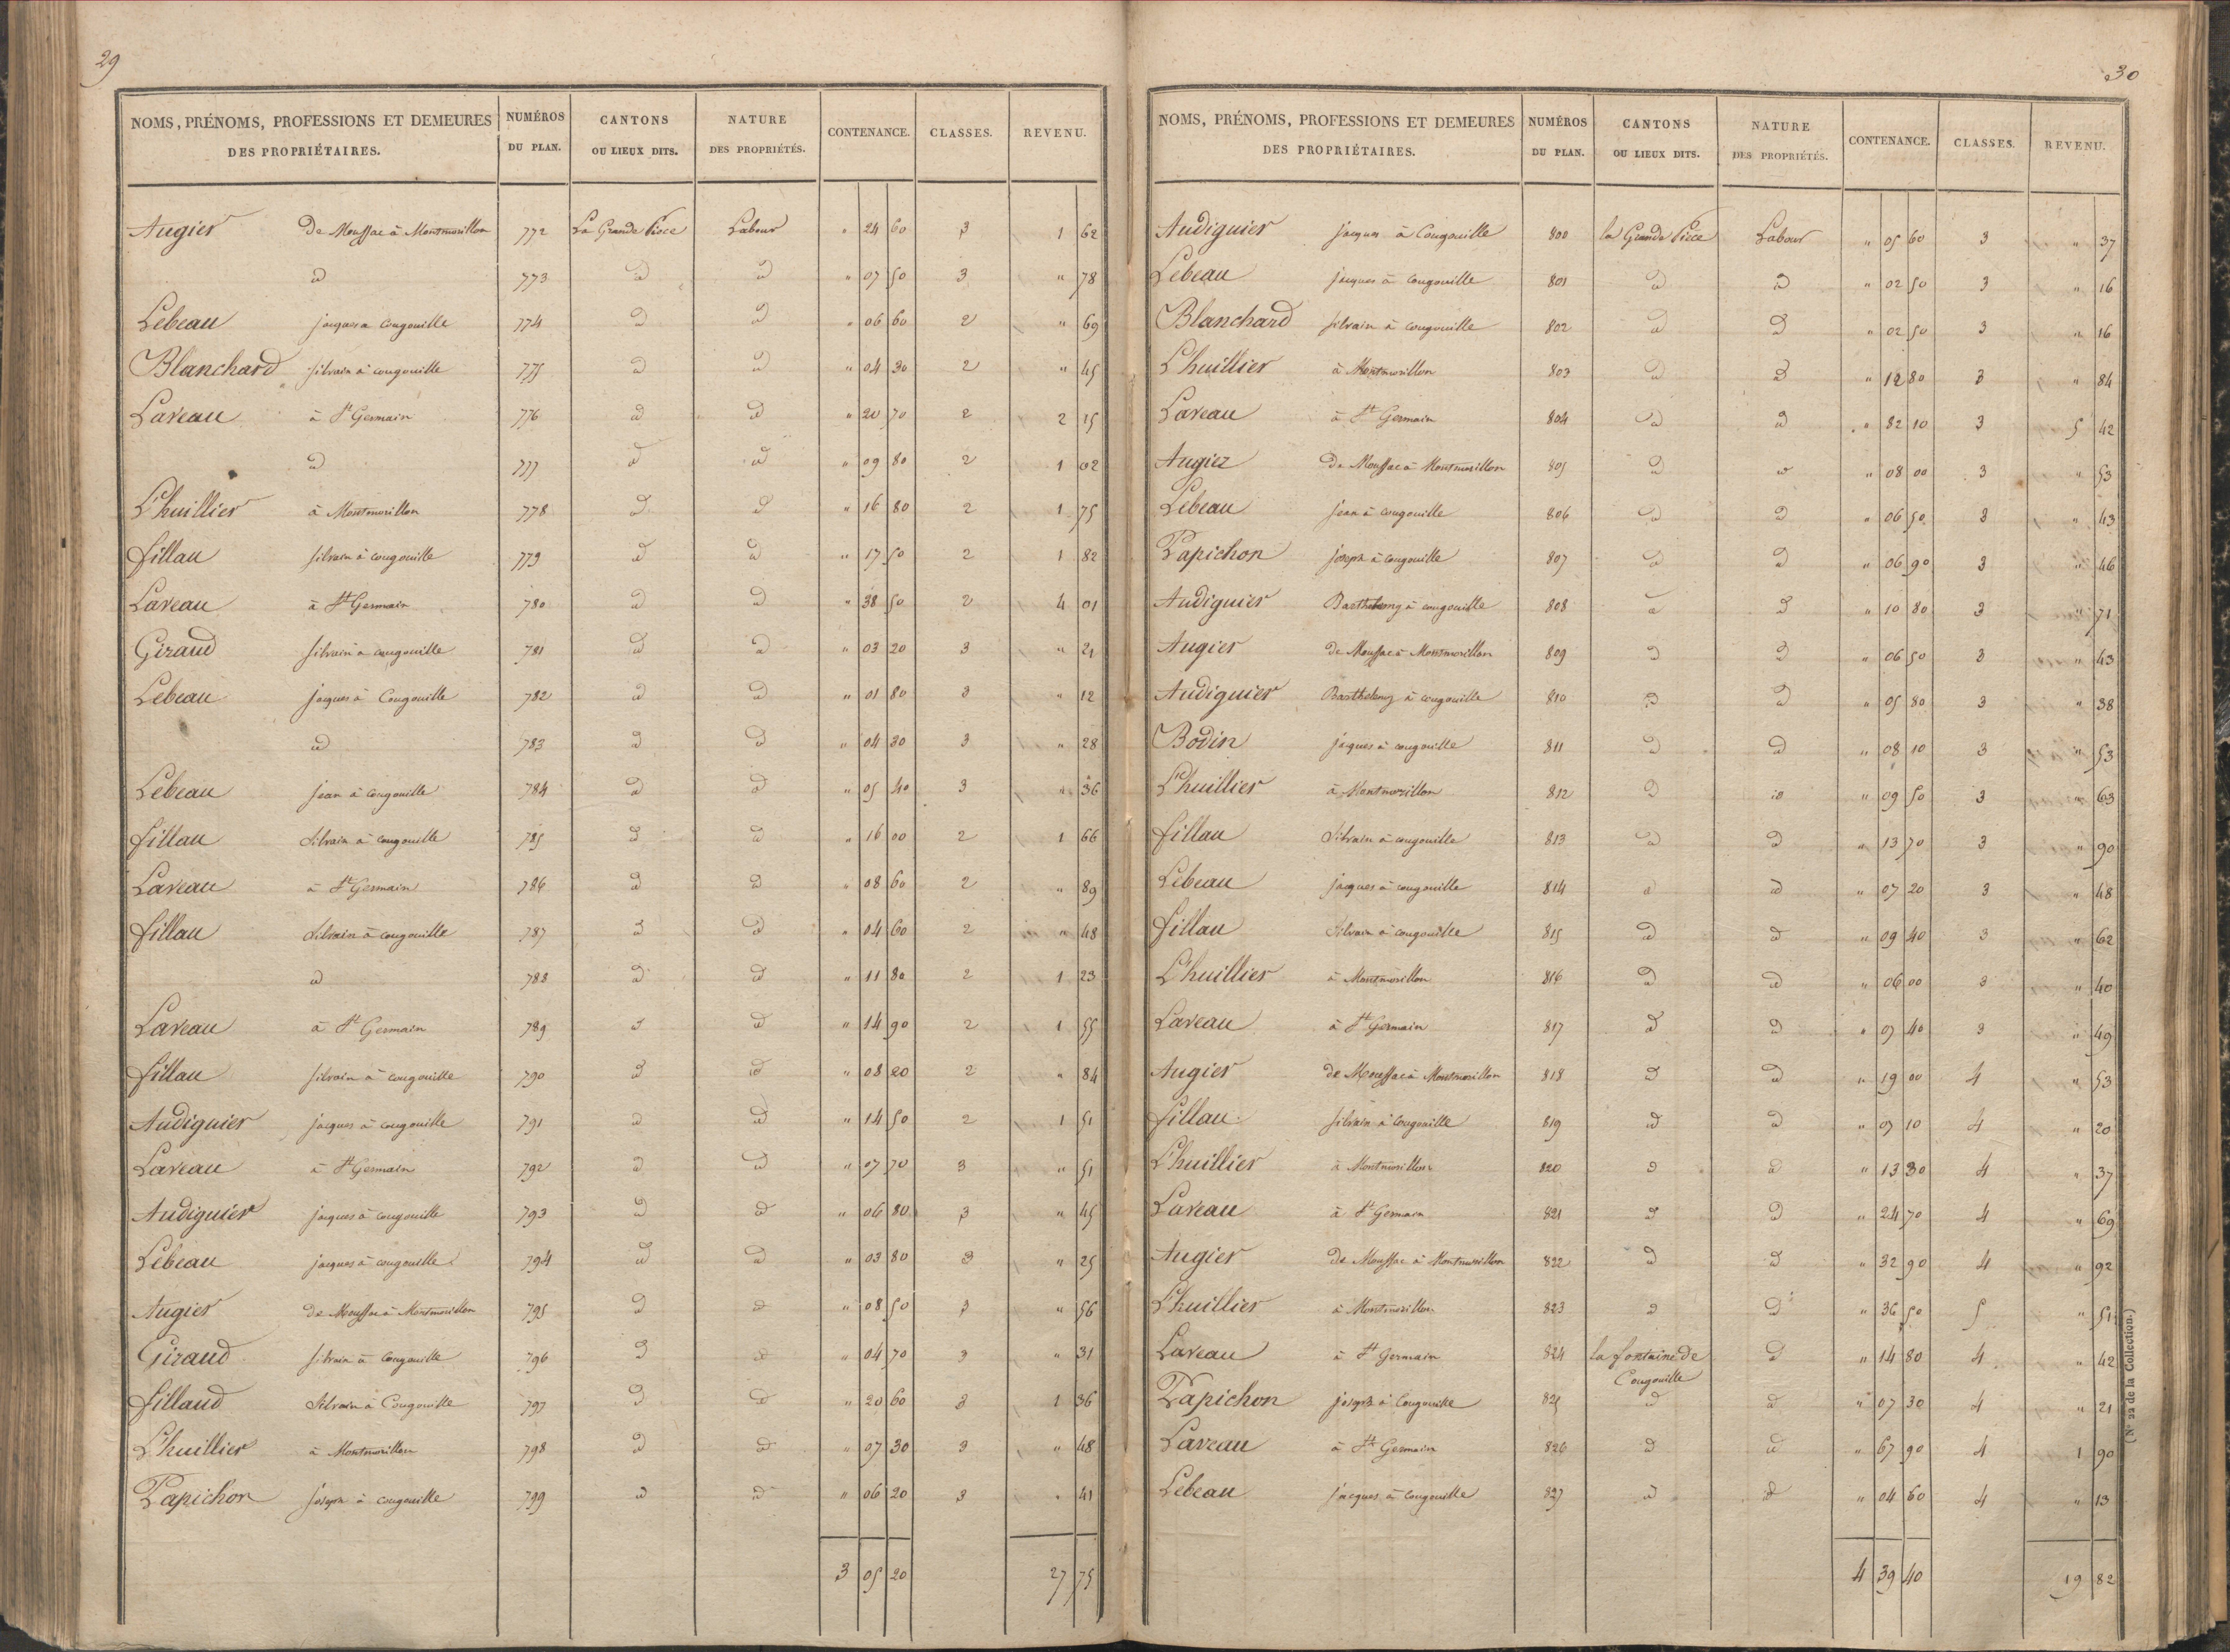 29
NOMS, PRÉNOMS, PROFESSIONS ET DEMEURES DES PROPRIÉTAIRES. NUMÉROS DU PLAN. CANTONS OU LIEUX DITS. NATURE DES PROPRIÉTÉS. CONTENANCE. CLASSES. REVENU.
Augier de Moussac à Montmorillon 772 La Grande Piece Labour " 24 60 3 1 62
d 773 d d " 07 50 3 " 78
Lebeau jacques a Cougouille 774 d d " 06 60 2 " 69
Blanchard silvain à cougouille 775 d d " 04 30 2 " 45
Laveau à St Germain 776 d d " 20 70 2 2 15
d 777 d d " 09 80 2 1 02
L'huillier à Montmorillon 778 d d " 16 80 2 1 75
fillau silvain à cougouille 779 d d " 17 50 2 1 82
Laveau à St Germain 780 d d " 38 50 2 4 01
Giraud silvain a cougouille 781 d d " 03 20 3 " 21
Lebeau jacques à Cougouille 782 d d " 01 80 3 " 12
d 783 d d " 04 30 3 " 28
Lebeau jean à Cougouille 784 d d " 05 40 3 " 36
fillau Silvain à cougouille 785 d d " 16 00 2 1 66
Laveau à St Germain 786 d d " 08 60 2 " 89
fillau Silvain à cougouille 787 d d " 04 60 2 " 48
d 788 d d " 11 80 2 1 23
Laveau à St Germain 789 d d " 14 90 2 1 55
fillau silvain à cougouille 790 d d " 08 20 2 " 84
Audiguier jacques à cougouille 791 d d " 14 50 2 1 51
Laveau à St Germain 792 d d " 07 70 3 " 51
Audiguier jacques à cougouille 793 d d " 06 80 3 " 45
Lebeau jacques à cougouille 794 d d " 03 80 3 " 25
Augier de Moussac à Montmorillon 795 d d " 08 50 3 " 56
Giraud silvain à Cougouille 796 d d " 04 70 3 " 31
fillaud Silvain à Cougouille 797 d d " 20 60 3 1 36
L'huillier à Montmorillon 798 d d " 07 30 3 " 48
Papichon joseph à cougouille 799 d d " 06 20 3 " 41
3 05 20 27 75
30
NOMS, PRÉNOMS, PROFESSIONS ET DEMEURES DES PROPRIÉTAIRES. NUMÉROS DU PLAN. CANTONS OU LIEUX DITS. NATURE DES PROPRIÉTÉS. CONTENANCE. CLASSES. REVENU.
Audiguier jacques à Cougouille 800 la Grande Piece Labour " 05 60 3 " 37
Lebeau jacques à Cougouille 801 d d " 02 50 3 " 16
Blanchard silvain à cougouille 802 d d " 02 50 3 " 16
L'huillier à Montmorillon 803 d d " 12 80 3 " 84
Laveau à St Germain 804 d d " 82 10 3 5 42
Augier de Moussac à Montmorillon 805 d d " 08 00 3 " 53
Lebeau jean à cougouille 806 d d " 06 50 3 " 43
Papichon joseph à cougouille 807 d d " 06 90 3 " 46
Audiguier Barthelemy à cougouille 808 d d " 10 80 3 " 71
Augier de Moussac à Montmorillon 809 d d " 06 50 3 " 43
Audiguier Barthelemy à cougouille 810 d d " 05 80 3 " 38
Bodin jacques à cougouille 811 d d " 08 10 3 " 53
L'huillier à Montmorillon 812 d d " 09 50 3 " 63
fillau Silvain à cougouille 813 d d " 13 70 3 " 90
Lebeau jacques à cougouille 814 d d " 07 20 3 " 48
fillau Silvain à cougouille 815 d d " 09 40 3 " 62
L'huillier à Montmorillon 816 d d " 06 00 3 " 40
Laveau à St Germain 817 d d " 07 40 3 " 49
Augier de Moussac à Montmorillon 818 d d " 19 00 4 " 53
fillau silvain à Cougouille 819 d d " 07 10 4 " 20
L'huillier à Montmorillon 820 d d " 13 30 4 " 37
Laveau à St Germain 821 d d " 24 70 4 " 69
Augier de Moussac à Montmorillon 822 d d " 32 90 4 " 92
L'huillier à Montmorillon 823 d d " 36 50 5 " 51
Laveau à St Germain 824 la fontaine de Cougouille d " 14 80 4 " 42
Papichon joseph à Cougouille 825 d d " 07 30 4 " 21
Laveau à St Germain 826 d d " 67 90 4 1 90
Lebeau jacques à Cougouille 827 d d " 04 60 4 " 13
4 39 40 19 82
(N° 22 de la Collection.)